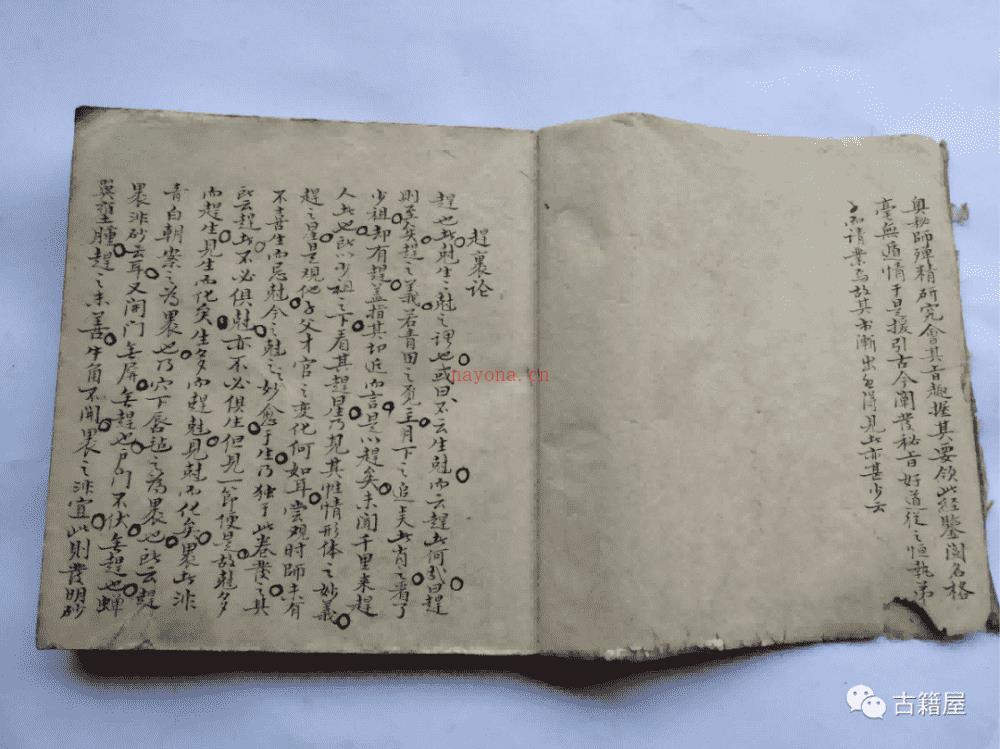 奥秘師殫精研究會其旨趣握其要領此經鑒阅名格
毫無遁情于是援引古今闡發秘旨好道從之恒執弟
子而請業焉故其书漸出
得見者亦甚少云
趕裹论
趕也者尅生之尅之谓也或曰不云生尅而云趕者何哉曰趕
則至矣趕之義若青田之覓主月下之追夫者肖之看了
少祖却有趕盖指其切近而言是以趕矣未闻千里来趕
人者也所以少祖之下看其趕星乃見其性情形体之妙義
趕之星是观他子父才官之变化何如耳嘗观时師未有
不喜生而忌尅今之尅之妙愈于生乃独于此卷發之其
所云趕者不必俱尅亦不必俱生但見一節便是故尅多
而趕生見生而化矣生多而趕尅見尅而化矣裹者非
青白朝案之为裹也乃穴下唇毡之为裹也所云趕
裹非砂云耳又開门無屏無趕也户门不伏無趕也蟬
翼壅腫趕之未善牛角不開裹之非宜此則發明砂
nayona.cn
古籍屋